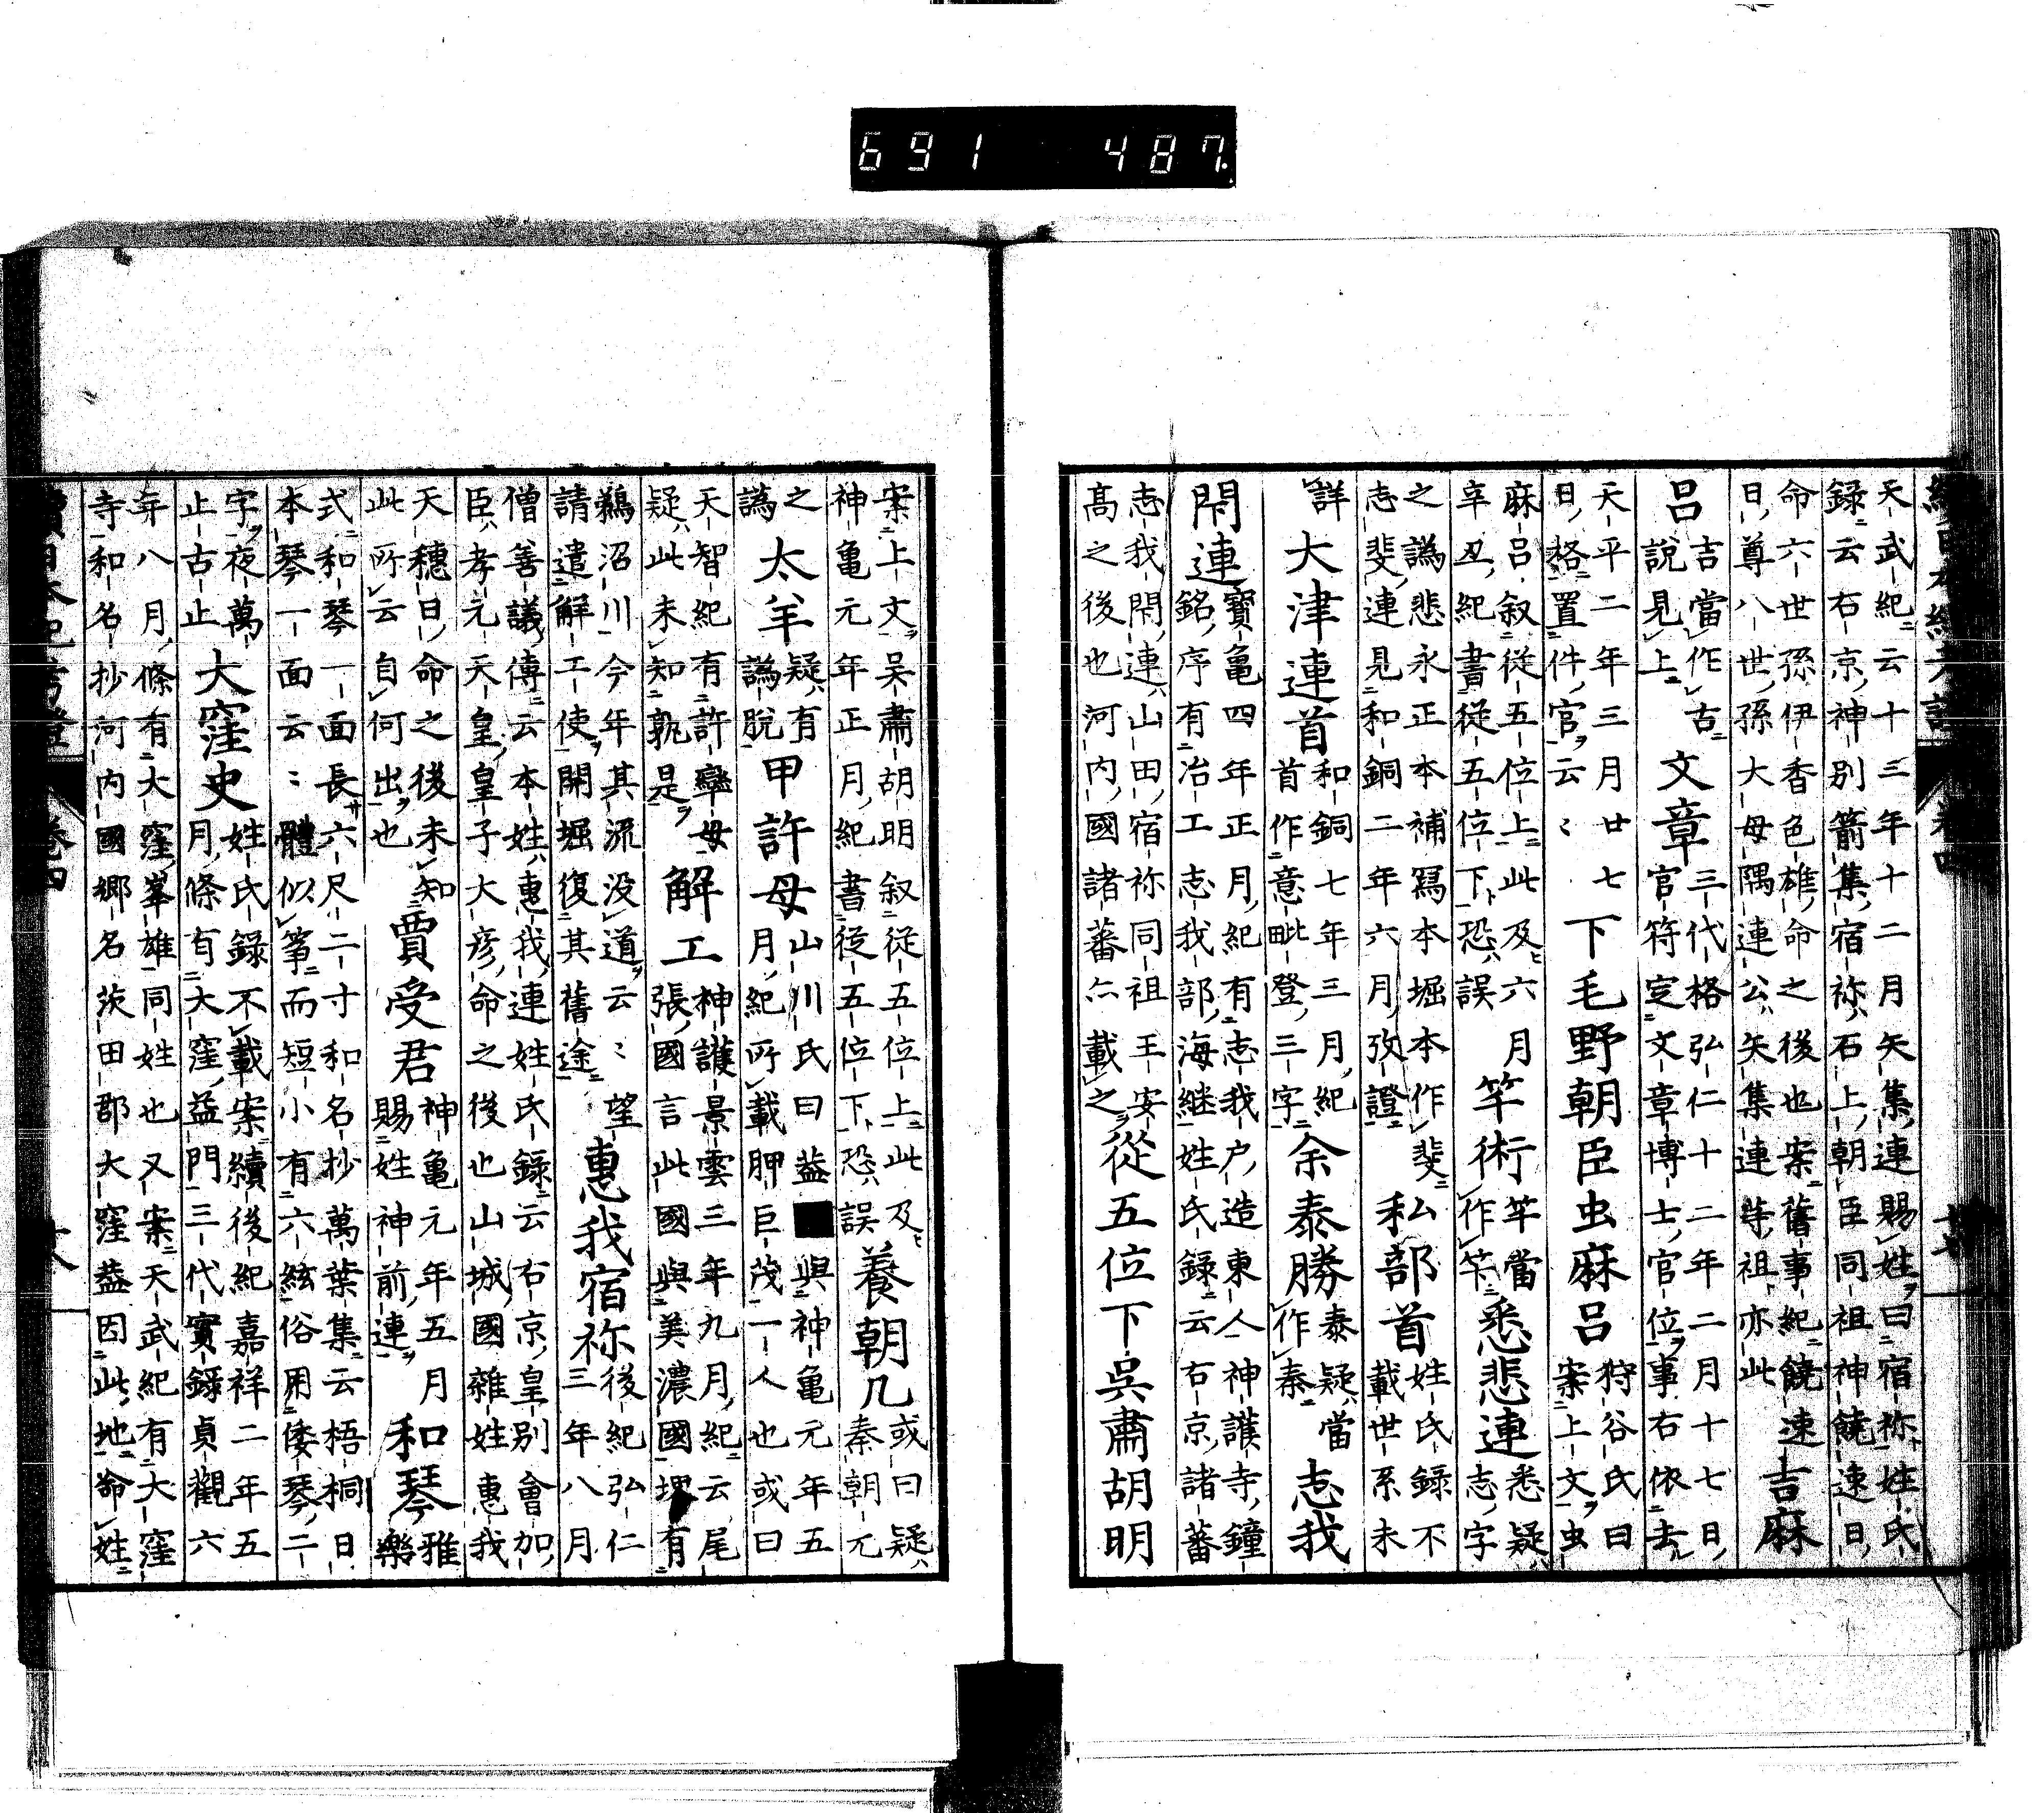 691 487
天武紀云十三年十二月矢集連賜姓曰宿祢姓氏
録云右京神別箭集宿祢石上朝臣同祖神饒速日
命六世孫伊香色雄命之後也案舊事紀饒速
日尊八世孫大母隅連公矢集連等祖亦此
吉麻
呂
吉當作古
說見上
文章
三代格弘仁十二年二月十七日
官符定文章博士官位事右依去
天平二年三月廿七
日格置件官云〻
下毛野朝臣虫麻呂
狩谷氏曰
案上文虫
麻呂叙從五位上此及六月
辛丑紀書從五位下恐誤
竿術
竿當
作笇
悉悲連
悉疑
志字
之譌悲永正本補冩本堀本作斐
志斐連見和銅二年六月攷證
私部首
姓氏録不
載世系未
詳
大津連首
和銅七年三月紀
首作意毗登三字
余泰勝
泰疑當
作秦
志我
閇連
寶亀四年正月紀有志我戸造東人神護寺鐘
銘序有冶工志我部海継姓氏録云右京諸蕃
志我閇連山田宿祢同祖王安
高之後也河内國諸蕃亦載之
從五位下吳肅胡明
案上文吴肅胡明叙從五位上此及
神亀元年正月紀書從五位下恐誤
養朝几
或曰疑
秦朝元
之
譌
太羊
疑有
譌脫
甲許母
山川氏曰葢與神亀元年五
月紀所載胛巨茂一人也或曰
天智紀有許率母
疑此未知孰是
解工
神護景雲三年九月紀云尾
張國言此國與美濃國堺有
鵜沼川今年其流没道云〻望
請遣解工使開堀復其舊途
惠我宿祢
後紀弘仁
三年八月
僧善議傳云本姓惠我連姓氏録云右京皇別會加
臣孝元天皇皇子大彦命之後也山城國雜姓惠我
天穗日命之後未知
此所云自何出也
賈受君
神亀元年五月
賜姓神前連
和琴
雅
樂
式和琴一面長六尺二寸和名抄萬葉集云梧桐日
本琴一面云〻體似箏而短小有六絃俗用倭琴二
字夜萬
止古止
大窪史
姓氏録不載案續後紀嘉祥二年五
月條有大窪益門三代實録貞觀六
年八月條有大窪峯雄同姓也又案天武紀有大窪
寺和名抄河内國郷名茨田郡大窪葢因此地命姓